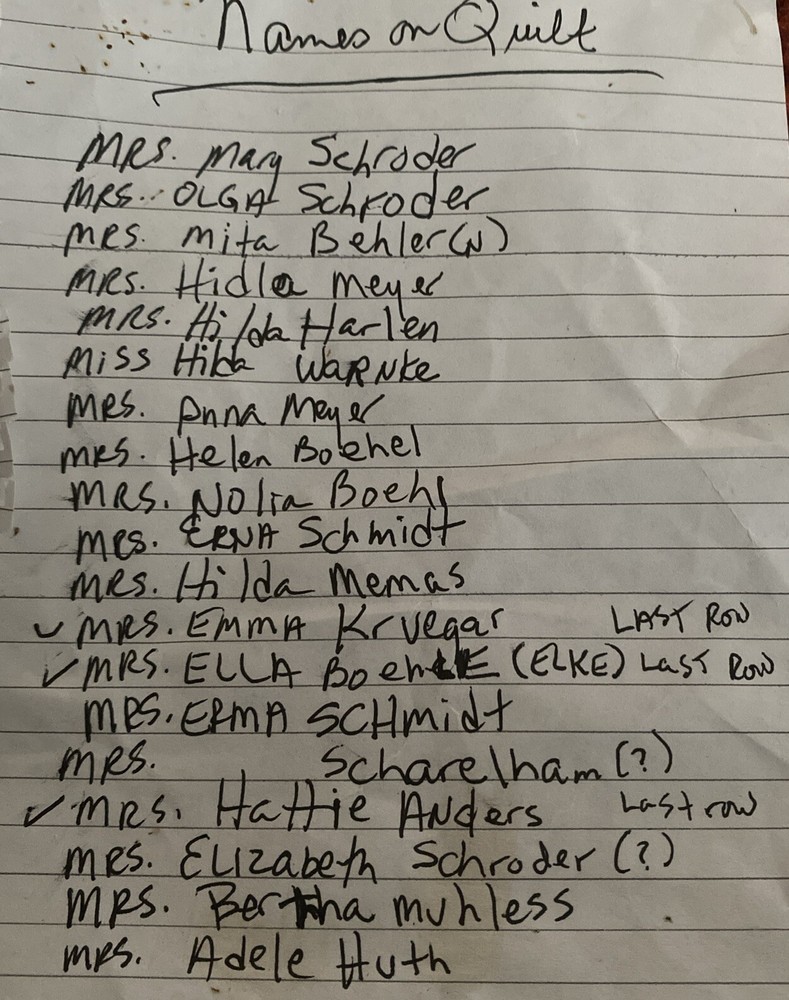 Names on Quilt
MRS. Mary Schroder
MRS. OLGA Schroder
MRS. Mita Behler(N)
MRS. Hidla Meyer
MRS. Hilda Harlen
Miss Hilda WARNke
MRS. Anna Meyer
MRS. Helen Boehel
MRS. Nolia Boehl
MRS. ERNA Schmidt
MRS. Hilda Memas
✓ MRS. EMMA Kruegar LAST ROW
✓ MRS. ELLA Boehle (ELKE) Last Row
MRS. ERMA SCHmidt
MRS. Scharelham (?)
✓ MRS. Hattie ANders Last row
MRS. ELIZabeth Schroder (?)
MRS. Bertha muhless
MRS. Adele Huth